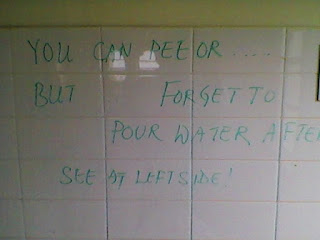 YOU CAN PEE OR .....
BUT FORGET TO
POUR WATER AFTE
SEE AT LEFT SIDE!